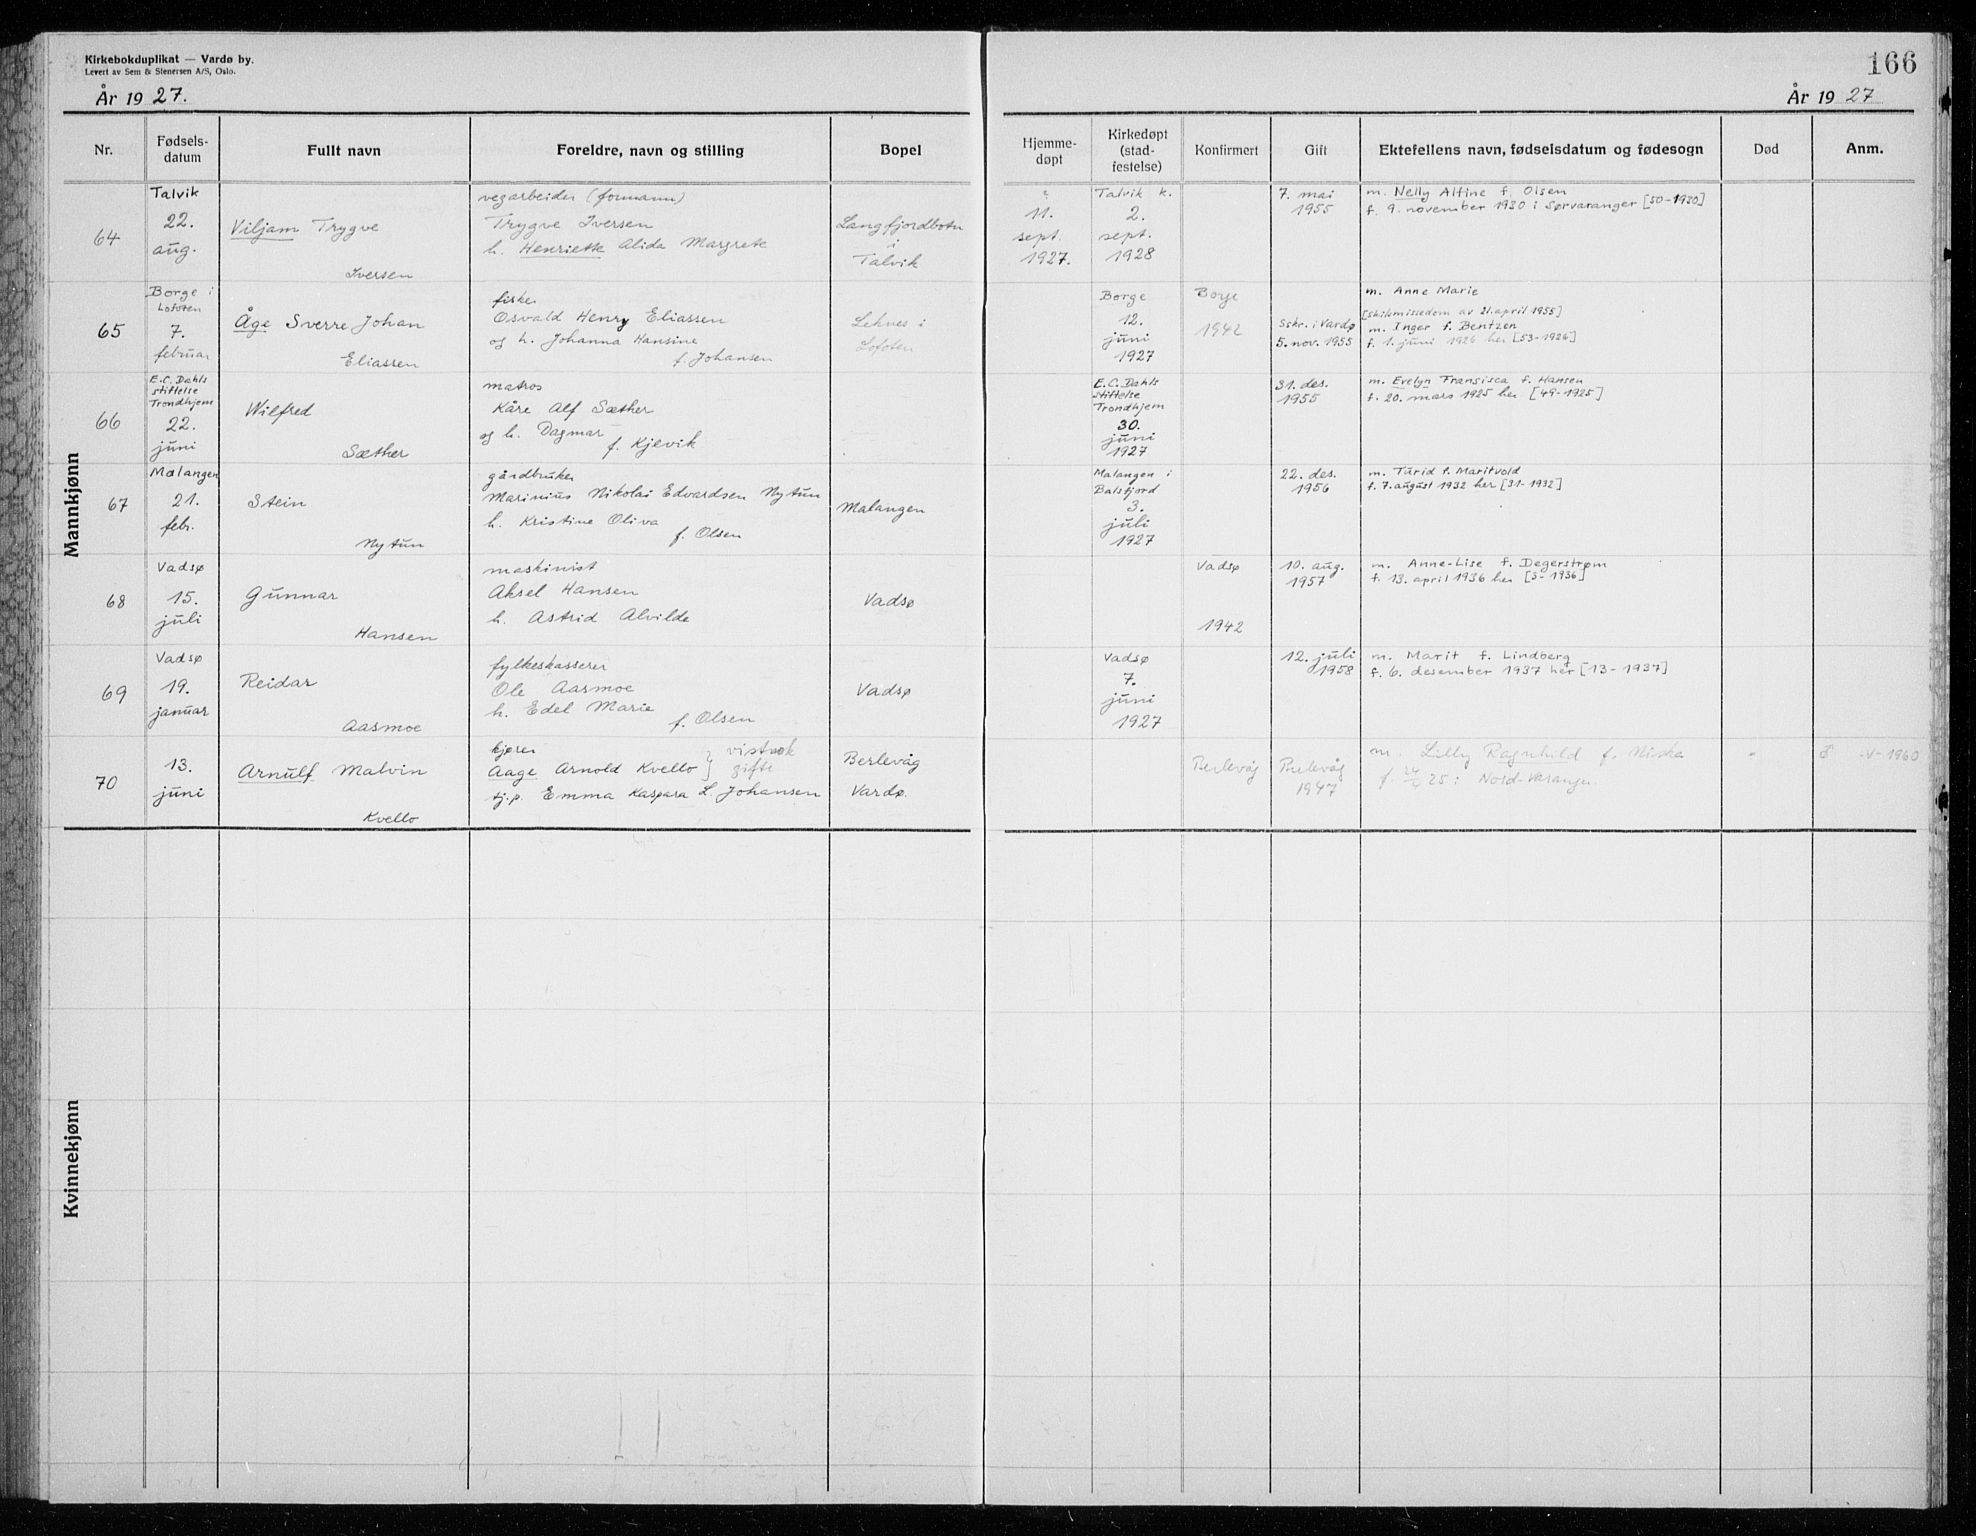 Kirkebokduplikat — Vardø by.
Levert av Sem & Stenersen A/S, Oslo.
År 1927.
166
År 1927
Nr.
Fødsels-
datum
Fullt navn
Foreldre, navn og stilling
Bopel
Hjemme-
døpt
Kirkedøpt
(stad-
festelse)
Konfirmert
Gift
Ektefellens navn, fødselsdatum og fødesogn
Død
Anm.
Mannkjønn
64
Talvik
22.
aug.
Viljam Trygve
Iversen
vegarbeider (formann)
Trygve Iversen
h. Henriette Alida Margrete
Langfjordbotn
i
Talvik
11.
sept.
1927.
Talvik k.
2.
sept.
1928
7. mai
1955
m. Nelly Alfine f. Olsen
f. 9. november 1930 i Sørvaranger [50-1930]
65
Borge i
Lofoten
7.
februar
Åge Sverre Johan
Eliassen
fisker
Osvald Henry Eliassen
og h. Johanna Hansine
f. Johansen
Leknes i
Lofoten
Borge
12.
juni
1927
Borge
1942
Sskr. i Vardø
5. nov. 1955
m. Anne Marie
[Skilsmissedom av 21. april 1955]
m. Inger f. Bentzen
f. 1. juni 1926 her [53-1926]
66
E.C. Dahls
stiftelse
Trondhjem
22.
juni
Wilfred
Sæther
matros
Kåre Alf Sæther
og h. Dagmar
f. Kjevik
E.C. Dahls
stiftelse
Trondhjem
30.
juni
1927
31. des.
1955
m. Evelyn Fransisca f. Hansen
f. 20. mars 1925 her [49-1925]
67
Malangen
21.
febr.
Stein
Nytun
gårdbruker
Marinius Nikolai Edvardsen Nytun
h. Kristine Oliva
f. Olsen
Malangen
Malangen i
Balsfjord
3.
juli
1927
22. des.
1956
m. Turid f. Maritvold
f. 7. august 1932 her [31-1932]
68
Vadsø
15.
juli
Gunnar
Hansen
maskinist
Aksel Hansen
h. Astrid Alvilde
Vadsø
Vadsø
1942
10. aug.
1957
m. Anne-Lise f. Degerstrøm
f. 13. april 1936 her [3-1936]
69
Vadsø
19.
januar
Reidar
Aasmoe
fylkeskasserer
Ole Aasmoe
h. Edel Marie
f. Olsen
Vadsø
Vadsø
7.
juni
1927
12. juli
1958
m. Marit f. Lindberg
f. 6. desember 1937 her [13-1937]
70
13.
juni
Arnulf Malvin
Kvello
kjører
Aage Arnold Kvello } vistnok gifte
tj.p. Emma Kaspara L. Johansen
Berlevåg
Vardø.
Berlevåg
Berlevåg
1947
m. Lilly Ragnhild f. Niska
f. 25 i Nord-Varanger
V-1960
Kvinnekjønn